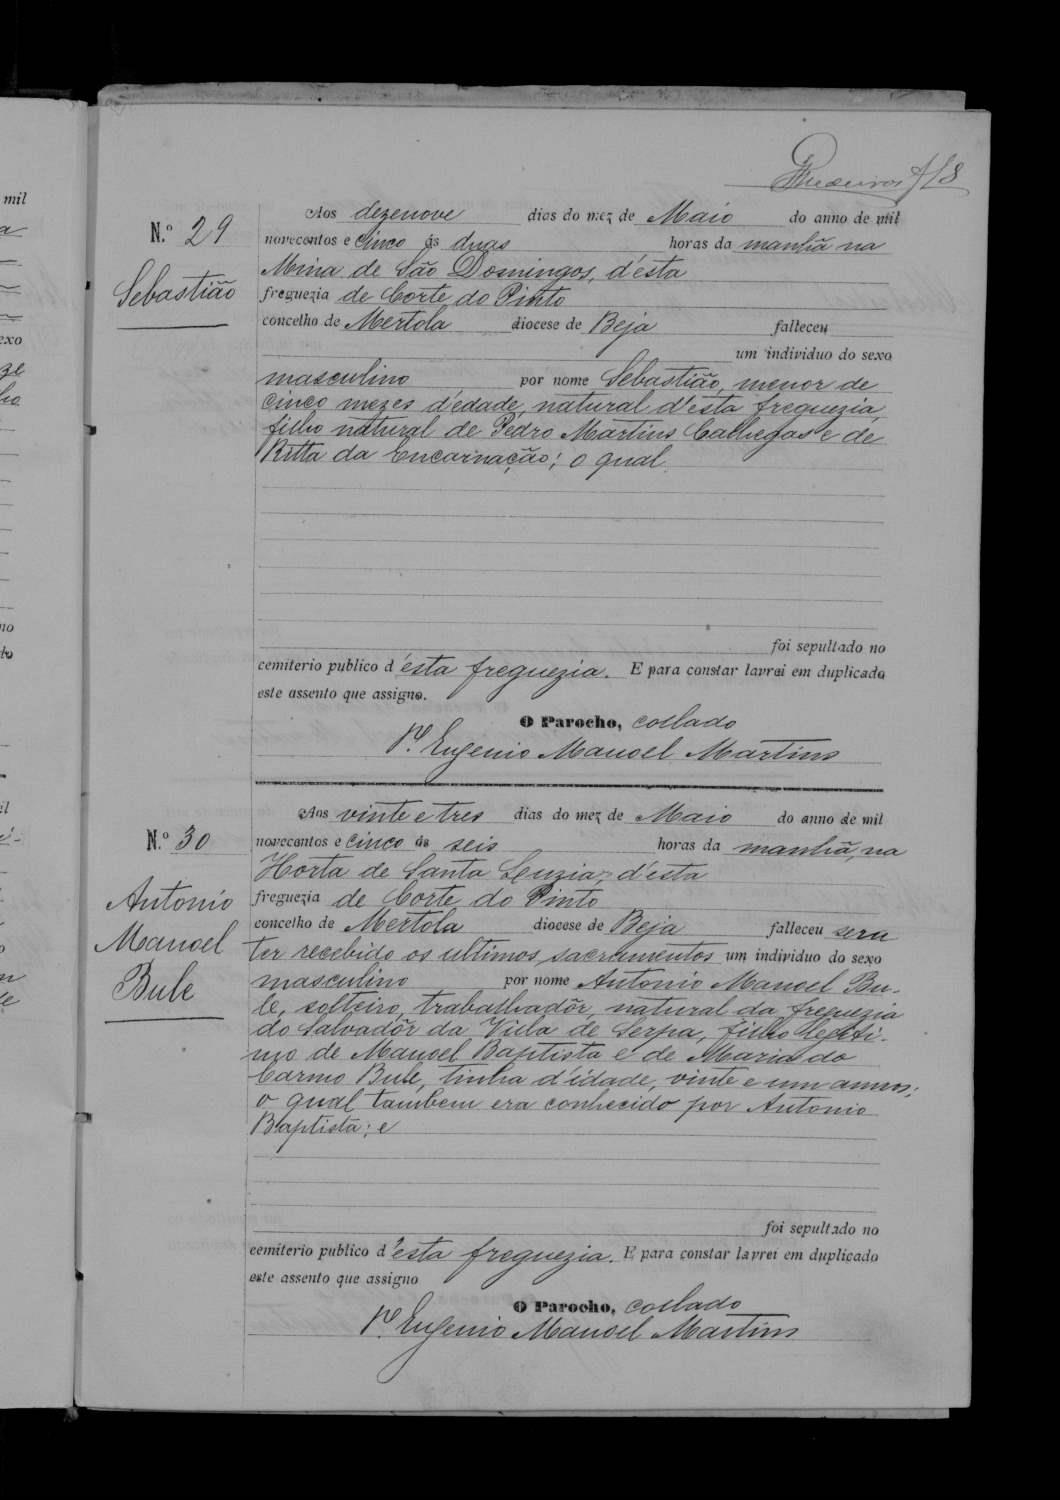 18
N.º 29
Sebastião
Aos dezenove dias do mez de Maio do anno de mil
novecentos e cinco ás duas horas da manhã na
Mina de São Domingos, d'ésta
freguezia de Corte do Pinto
concelho de Mertola diocese de Beja falleceu
um individuo do sexo
masculino por nome Sebastião, menor de
cinco mezes d'édade, natural d'ésta freguezia,
filho natural de Pedro Martins Calhegas e de
Ritta da Encarnação; o qual
foi sepultado no
cemiterio publico d'ésta freguezia. E para constar lavrei em duplicado
este assento que assigno.
O Parocho, collado
P.e Eugenio Manoel Martins
N.º 30
Antonio
Manoel
Bule
Aos vinte e tres dias do mez de Maio do anno de mil
novecentos e cinco ás seis horas da manhã, na
Horta de Santa Luzia, d'ésta
freguezia de Corte do Pinto
concelho de Mertola diocese de Beja falleceu sem
ter recebido os ultimos sacramentos um individuo do sexo
masculino por nome Antonio Manoel Bu-
le, solteiro, trabalhadôr, natural da freguezia
do Salvadôr da Villa de Serpa, filho legiti-
mo de Manoel Baptista e de Maria do
Carmo Bule, tinha d'idade, vinte e um annos;
o qual tambem era conhecido por Antonio
Baptista; e
foi sepultado no
cemiterio publico d'ésta freguezia. E para constar lavrei em duplicado
este assento que assigno
O Parocho, collado
P.e Eugenio Manoel Martins